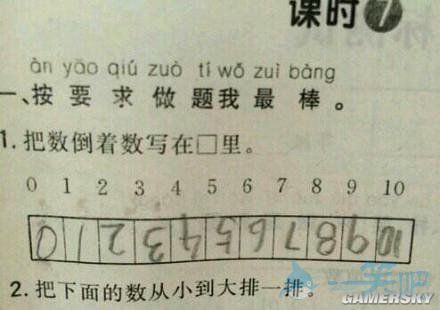 课时7
àn yāo qiú zuò tí wǒ zuì bàng
一、按要求做题我最棒。
1. 把数倒着数写在□里。
0 1 2 3 4 5 6 7 8 9 10
0 1 2 3 4 5 6 7 8 9 10
2. 把下面的数从小到大排一排。
一笑吧
GAMERSKY